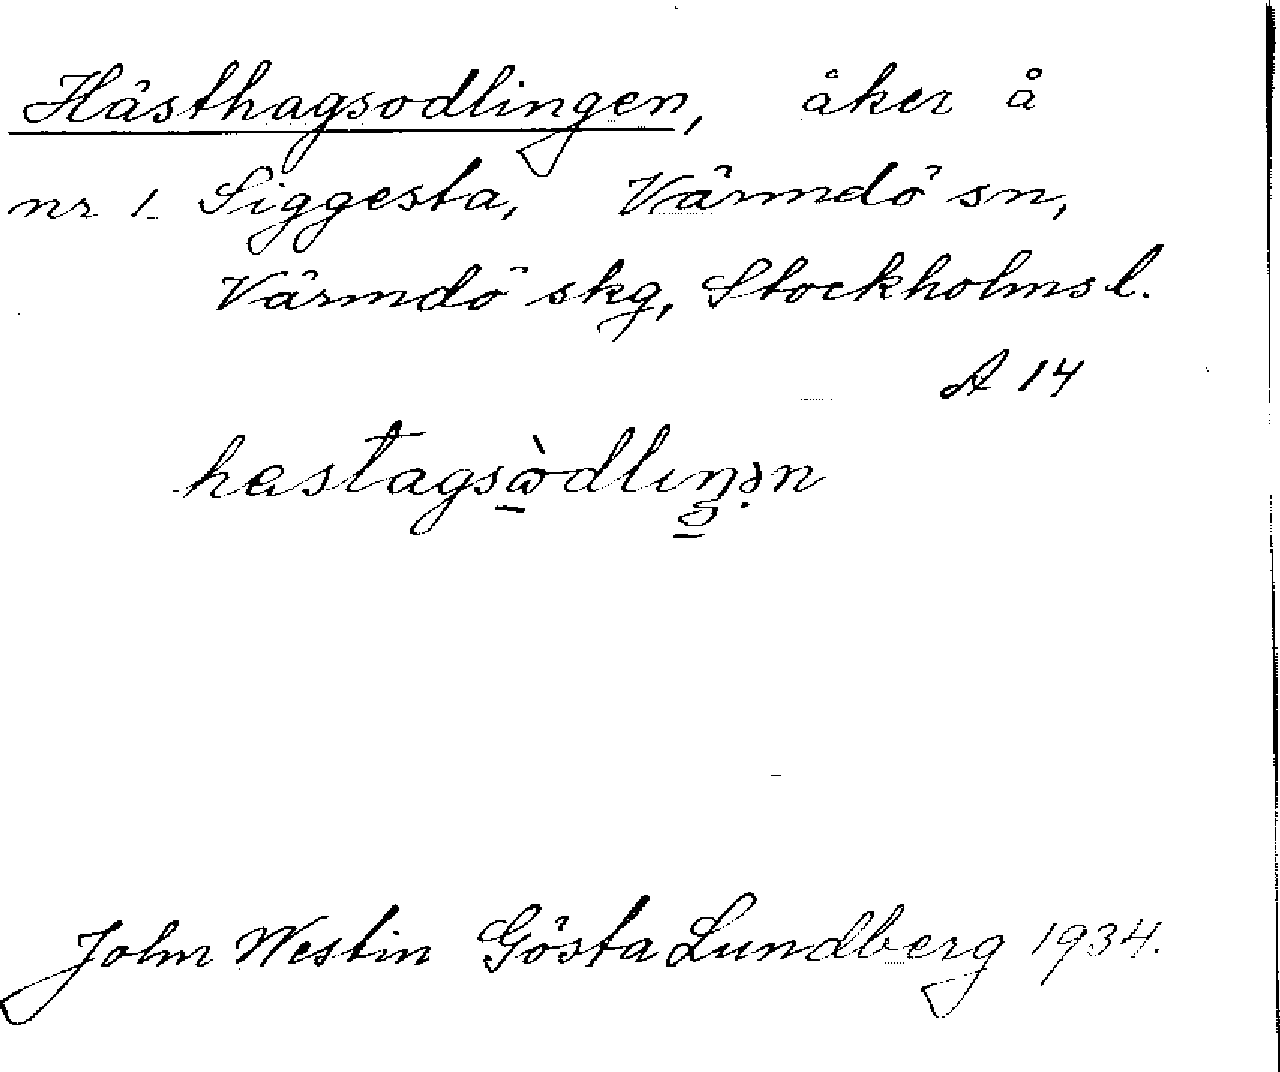 Hästhagsodlingen, åker å
nr 1 Siggesta, Värmdö sn,
Värmdö skg, Stockholms l.
A 14
John Westin Gösta Lundberg 1934.